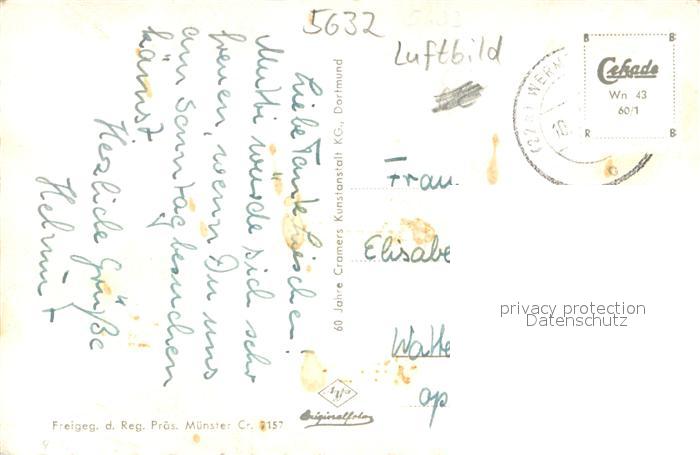 5632
Luftbild
Cekade
Wn 43
60/1
B B
R B
(22a) WERM
Liebe Tante Lieschen!
Mutti würde sich sehr
freuen, wenn Du uns
am Sonntag besuchen
kämst.
Herzliche Grüße
Helmut
60 Jahre Cramers Kunstanstalt KG., Dortmund
Frau
Elisabe
Watte
op
privacy protection
Datenschutz
Agfa
Originalfoto
Freigeg. d. Reg. Präs. Münster Cr. 157